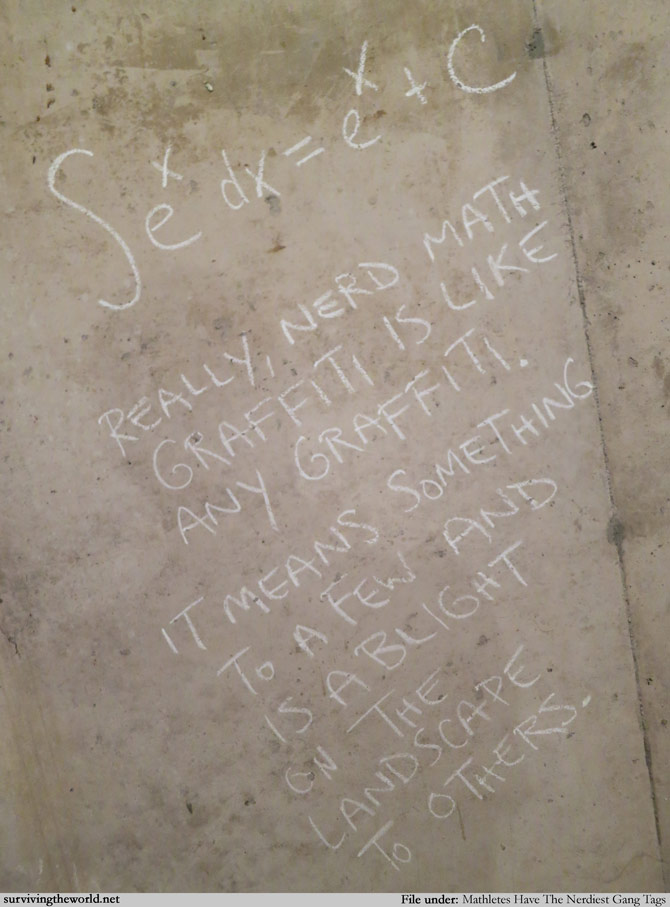 ∫e^x dx = e^x + C
REALLY, NERD MATH
GRAFFITI IS LIKE
ANY GRAFFITI.
IT MEANS SOMETHING
TO A FEW AND
IS A BLIGHT
ON THE
LANDSCAPE
TO OTHERS.
survivingtheworld.net
File under: Mathletes Have The Nerdiest Gang Tags